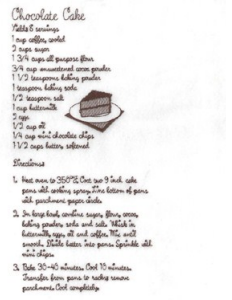 Chocolate Cake
Yields 8 servings
1 cup coffee, cooled
2 cups sugar
1 3/4 cups all purpose flour
3/4 cup unsweetened cocoa powder
1 1/2 teaspoons baking powder
1 teaspoon baking soda
1/2 teaspoon salt
1 cup buttermilk
2 eggs
1/2 cup oil
1/4 cup mini chocolate chips
1 1/2 cups butter, softened
Directions:
1. Heat oven to 350°F. Coat two 9 inch cake
pans with cooking spray. Line bottom of pans
with parchment paper circle.
2. In large bowl, combine sugar, flour, cocoa,
baking powder, soda and salt. Whisk in
buttermilk, eggs, oil and coffee. Mix until
smooth. Divide batter into pans. Sprinkle with
mini chips.
3. Bake 30-40 minutes. Cool 10 minutes.
Transfer from pans to racks; remove
parchment. Cool completely.